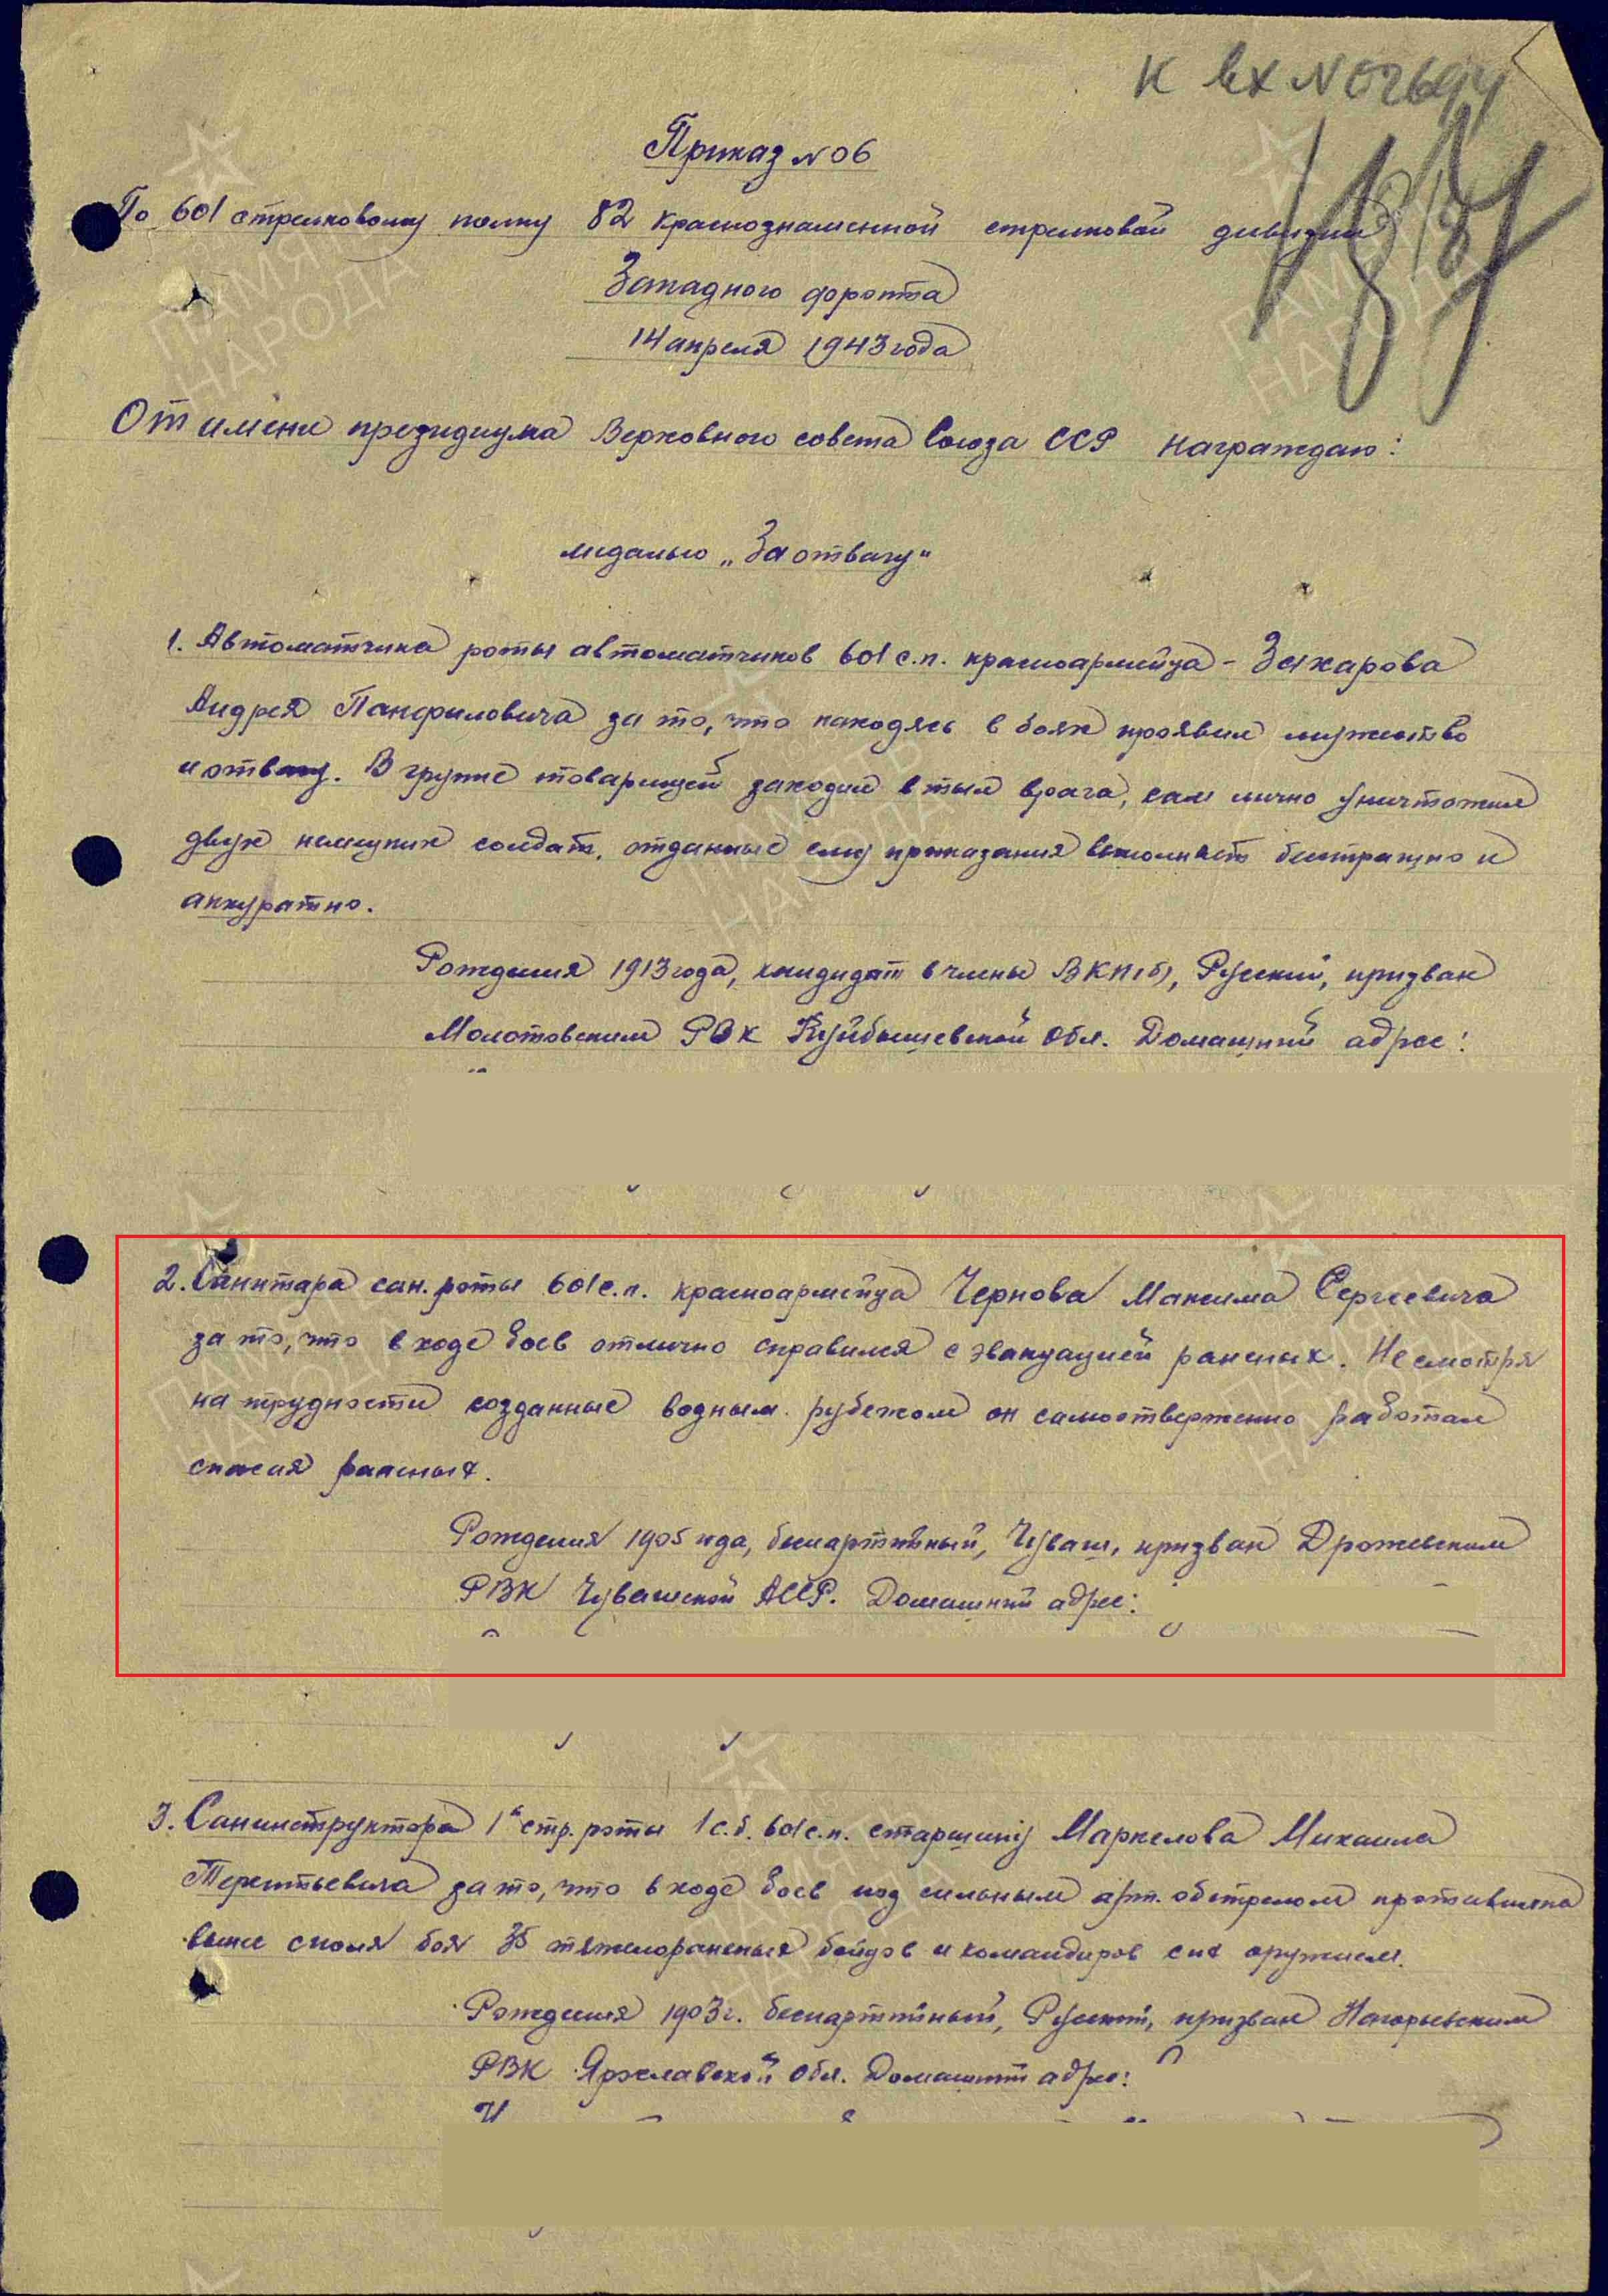 к вх N 02694
Приказ N 06
По 601 стрелковому полку 82 Краснознаменной стрелковой дивизии
Западного фронта
14 апреля 1943 года
От имени президиума Верховного совета Союза ССР награждаю:
медалью „За отвагу“
1. Автоматчика роты автоматчиков 601 с.п. красноармейца - Захарова
Андрея Панфиловича за то, что находясь в боях проявил мужество
и отвагу. В группе товарищей заходил в тыл врага, сам лично уничтожил
двух немецких солдат, отданные ему приказания выполняет бесстрашно и
аккуратно.
Рождения 1913 года, кандидат в члены ВКП(б), Русский, призван
Молотовским РВК Куйбышевской обл. Домашний адрес:
2. Санитара сан. роты 601 с.п. красноармейца Чернова Максима Сергеевича
за то, что в ходе боев отлично справился с эвакуацией раненых. Не смотря
на трудности созданные водным рубежом он самоотверженно работал
спасая раненых.
Рождения 1905 года, беспартийный, Чуваш, призван Дрожевским
РВК Чувашской АССР. Домашний адрес:
3. Санинструктора 1й стр. роты 1 с.б. 601 с.п. старшину Маркелова Михаила
Терентьевича за то, что в ходе боев под сильным арт. обстрелом противника
вынес с поля боя 35 тяжелораненых бойцов и командиров с их оружием.
Рождения 1903 г. беспартийный, Русский, призван Нагорьевским
РВК Ярославской обл. Домашний адрес:
ПАМЯТЬ
НАРОДА